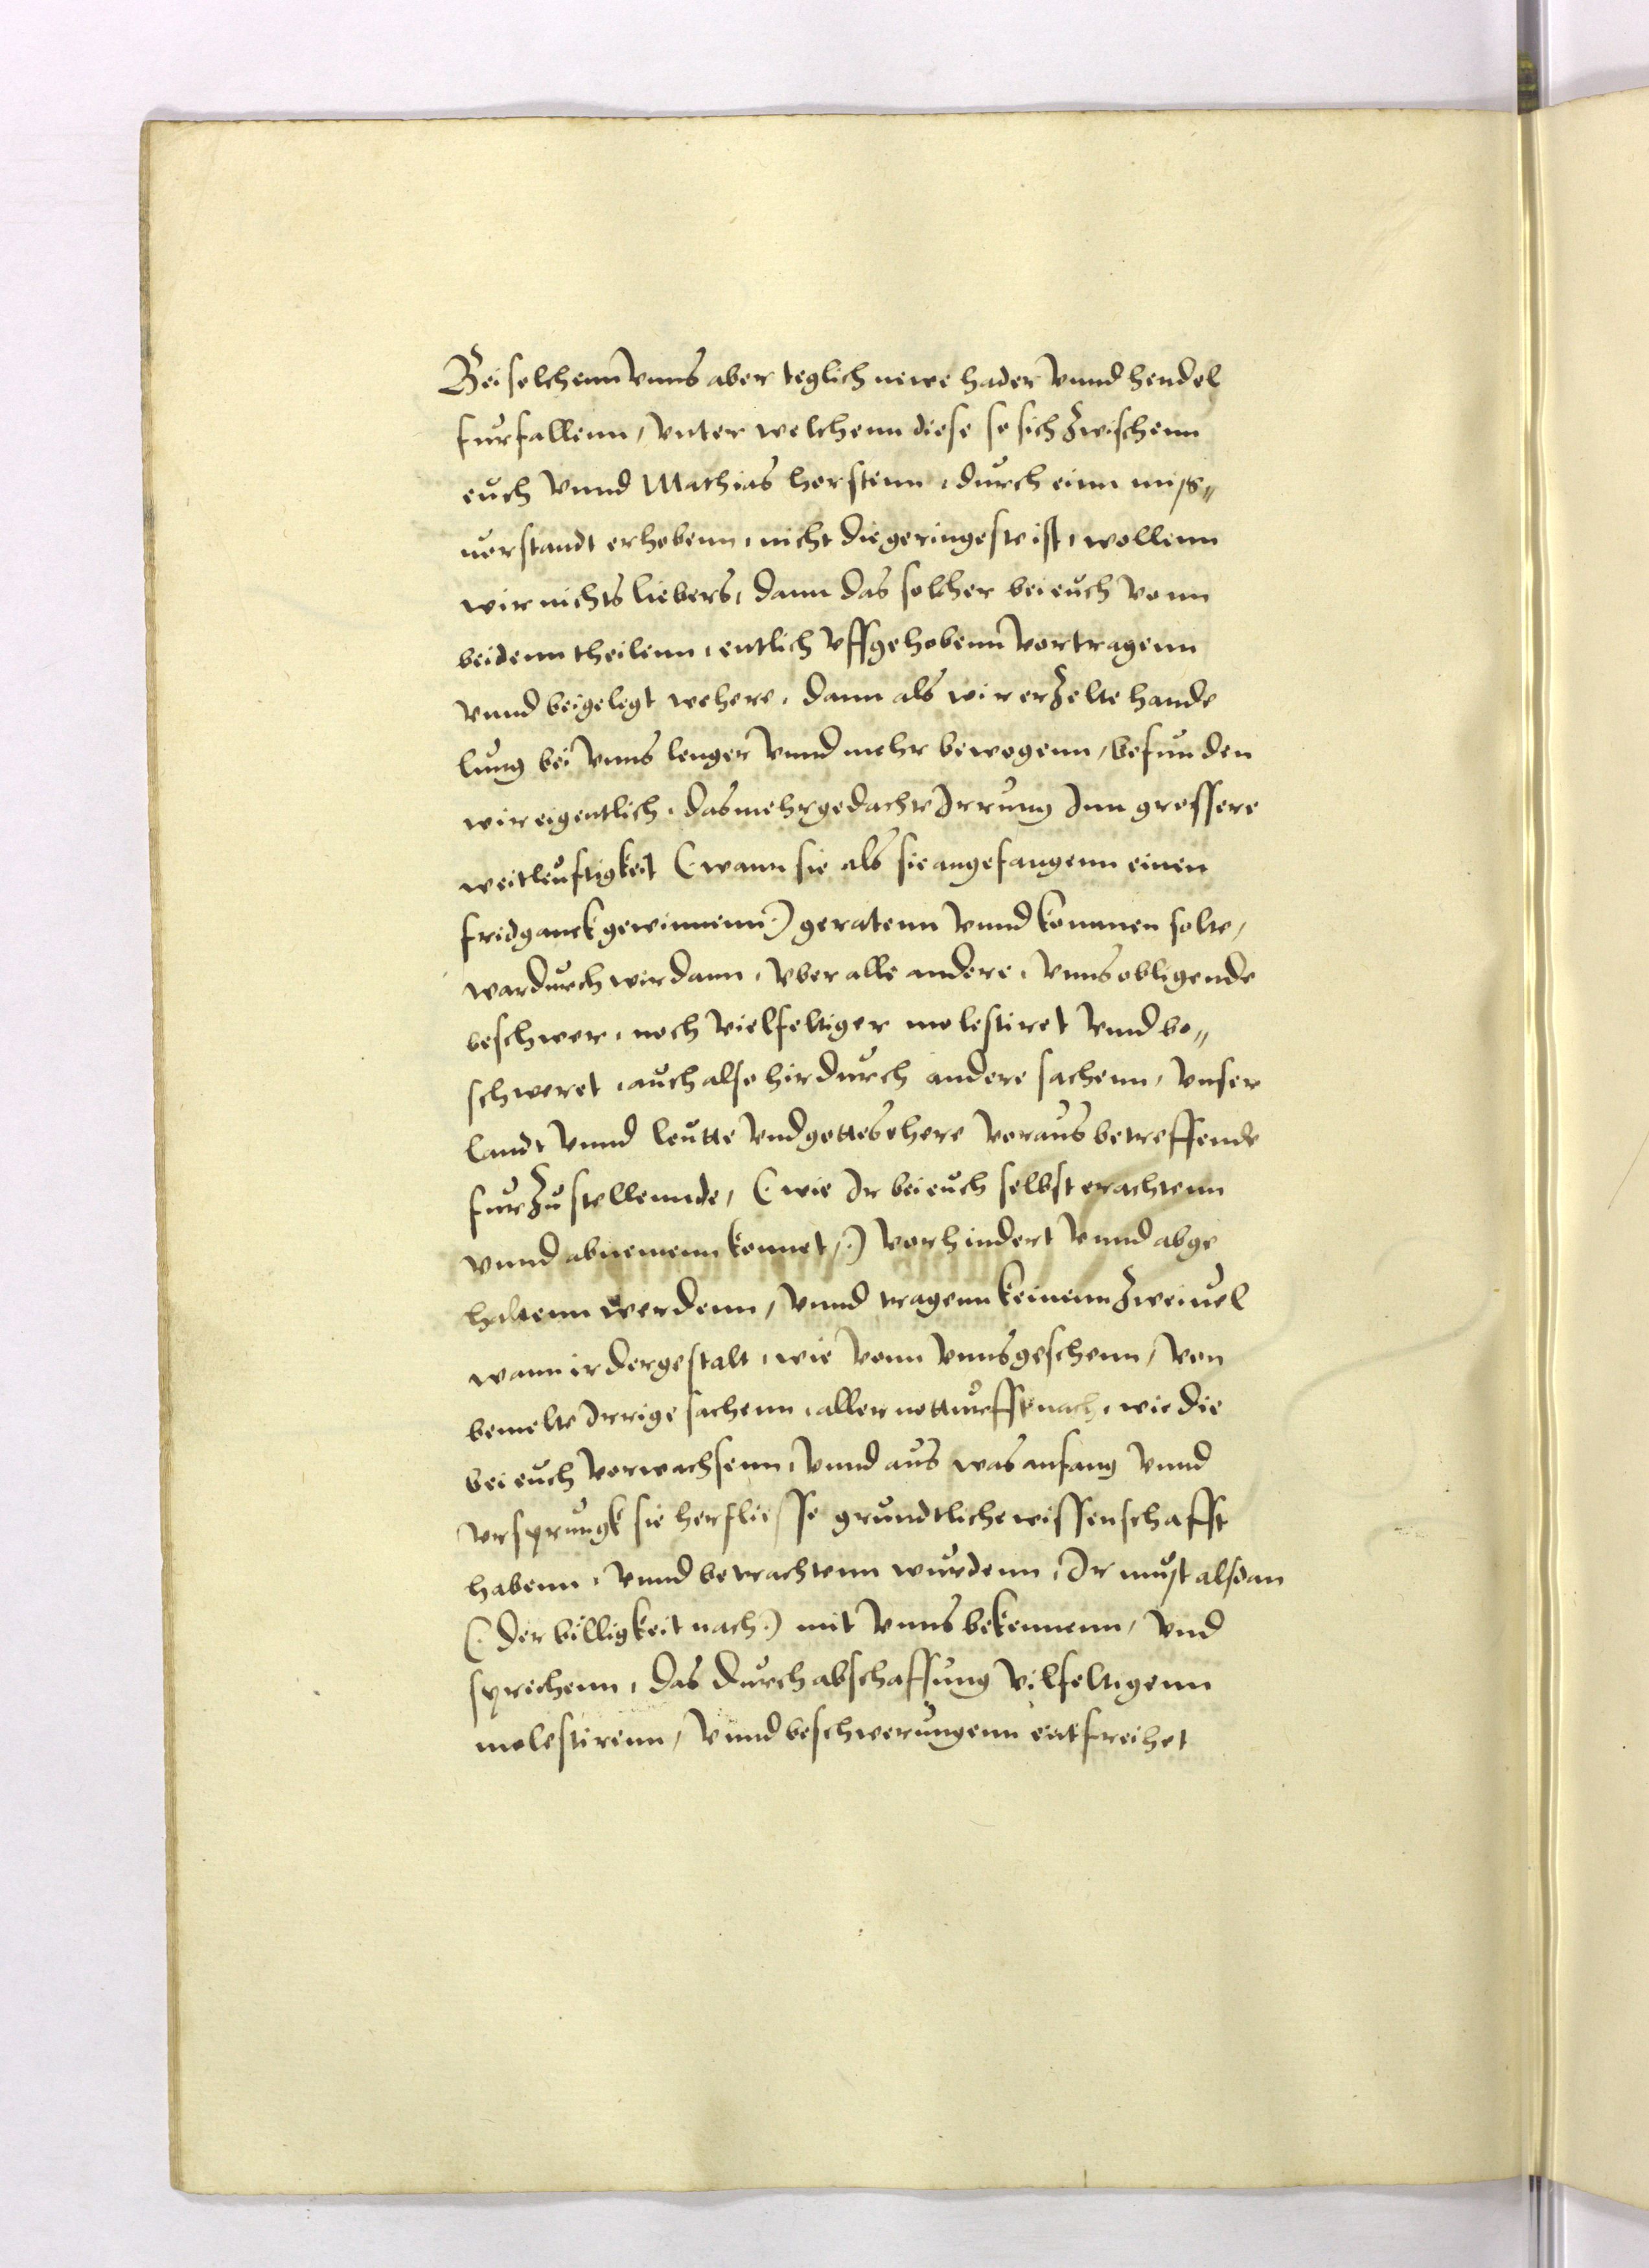 Bei solchenn vnns aber teglich newe hader vnnd hendel
furfallenn, vnter welchenn diese so sich zwischenn
euch vnnd Mathias horstenn, durch einn mis„
uorstandt erhobenn, nicht die geringeste ist, wollenn
wir nichts liebers, dann das solcher bei euch vonn
beidenn theilenn, entlich vffgehobenn vortragenn
vnnd beigelegt wehere, dann als wir erzelte hande
lung bei vnns lenger vnnd mehr bewogenn, befunden
wir eigentlich, das mehrgedachte Irrung Inn grossere
weitleuftigkeit (: wann sie als sie angefangenn einen
fridganck gewinnenn :) geratenn vnnd kommen solte,
wardurch wir dann, vber alle andere, vnns obligende
beschwer, noch vielfeltiger molestiret vnnd be„
schweret, auch also hirdurch andere sachenn, vnser
landt vnnd leutte vnd gottes ehere voraus betreffende
furzustellennde, (: wie Ir bei euch selbst erachtenn
vnnd abnemenn konnet, :) vorhindert vnnd abge
haltenn werdenn, vnnd tragenn keinenn zweiuel
wann ir dergestalt, wie vonn vnns geschenn, von
bemelte Irrige sachenn, aller notturfft nach, wie die
bei euch vorwachsenn, vnnd aus was anfang vnnd
vrsprungk sie herfliesse grundtliche wissenschafft
habenn, vnnd betrachtenn wurdenn, Ir must alsdan
(: der billigkeit nach :) mit vnns bekennenn, vnd
sprechenn, das durch abschaffung vilfeltigenn
molestirenn, vnnd beschwerungenn entfreihet